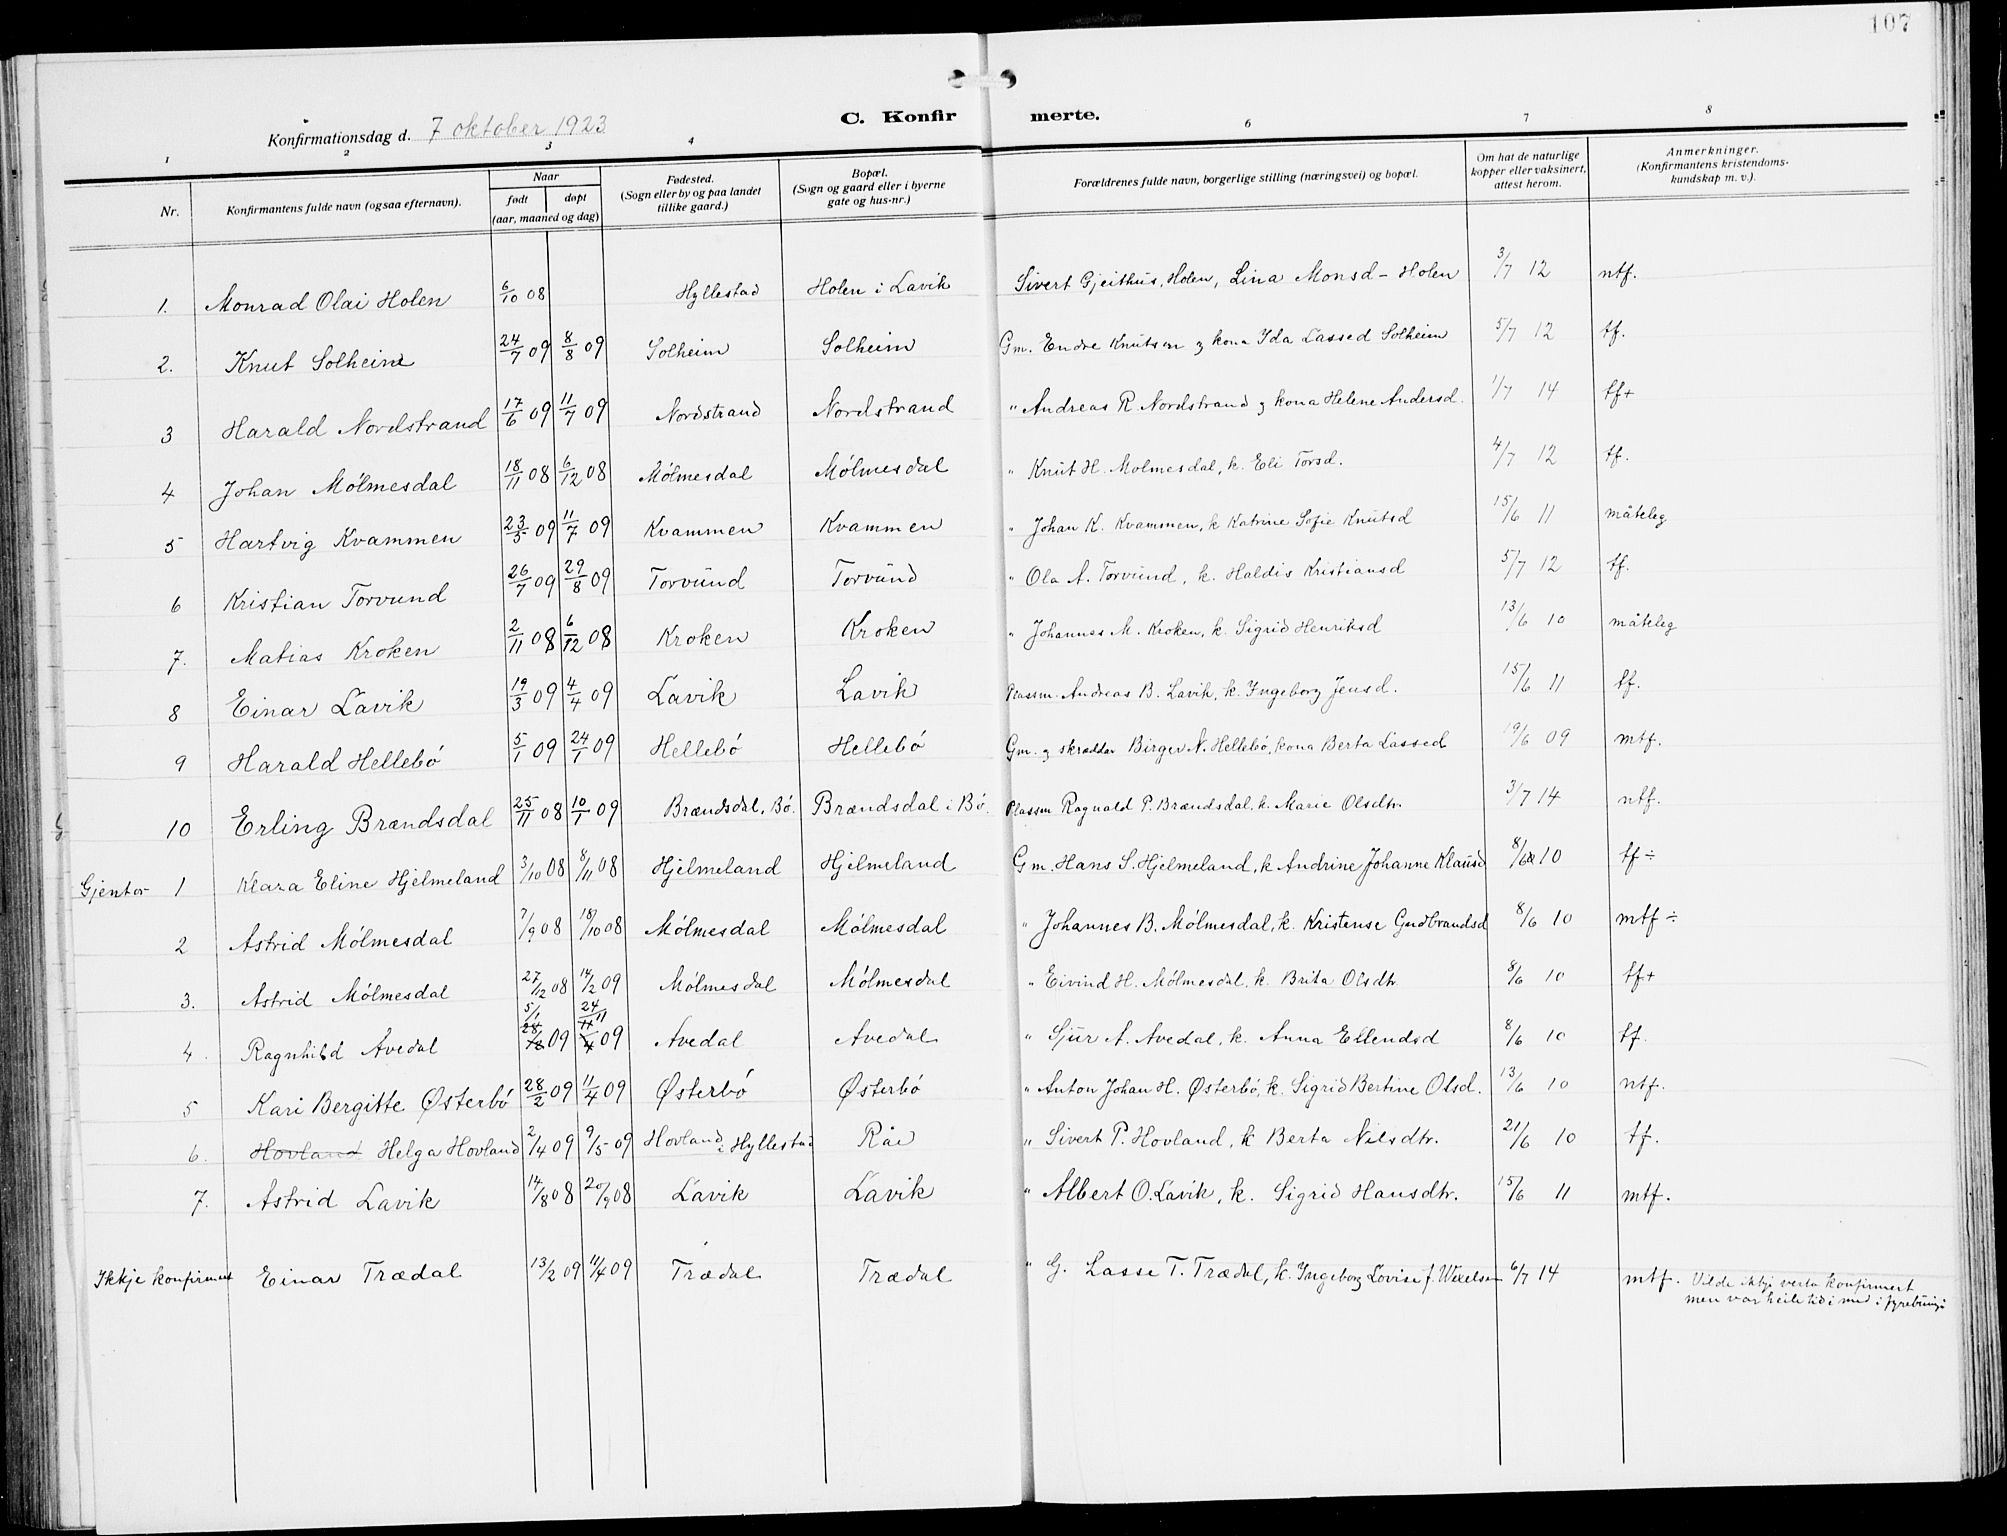 107
C. Konfirmerte.
Konfirmationsdag d. 7 oktober 1923
1 2 3 4 6 7 8
Nr. Konfirmantens fulde navn (ogsaa efternavn). Naar født døpt (aar, maaned og dag) Fødested. (Sogn eller by og paa landet tillike gaard.) Bopæl. (Sogn og gaard eller i byerne gate og hus-nr.) Forældrenes fulde navn, borgerlige stilling (næringsvei) og bopæl. Om hat de naturlige kopper eller vaksinert, attest herom. Anmerkninger. (Konfirmantens kristendomskundskap m. v.).
1. Monrad Olai Holen 6/10 08 Hyllestad Holen i Lavik Sivert Gjeithus, Holen, Lina Monsd - Holen 3/7 12 ntf.
2. Knut Solheim 24/7 09 8/8 09 Solheim Solheim Gm. Endre Knutson & kona Ida Lassed Solheim 5/7 12 tf.
3 Harald Nordstrand 17/6 09 11/7 09 Nordstrand Nordstrand " Andreas R. Nordstrand & kona Helene Andersd. 1/7 14 tf+
4 Johan Mólmesdal 18/11 08 6/12 08 Mólmesdal Mólmesdal " Knut H. Molmesdal, k. Eli Torsd. 4/7 12 tf.
5 Hartvig Kvammen 23/5 09 11/7 09 Kvammen Kvammen " Johan K. Kvammen, k Katrine Sofie Knutsd 15/6 11 måteleg
6 Kristian Torvund 26/7 09 29/8 09 Torvund Torvund " Ola A. Torvund, k. Haldis Kristiansd 5/7 12 tf.
7. Matias Kroken 2/11 08 6/12 08 Kroken Kroken " Johannes M. Kroken, k. Sigrid Henriksd 13/6 10 måteleg
8 Einar Lavik 19/3 09 4/4 09 Lavik Lavik Plassm. Andreas B. Lavik, k. Ingeborg Jensd. 15/6 11 tf.
9 Harald Hellebó 5/1 09 24/1 09 Hellebó Hellebó Gm. & skrædder Birger N. Hellebó, kona Berta Lassed 19/6 09 mtf.
10 Erling Brændsdal 25/11 08 10/1 09 Brændsdal, Bó. Brændsdal i Bó. Plassm Ragnald P. Brændsdal, k. Marie Olsdtr. 3/7 14 ntf.
Gjentor 1 Klara Eline Hjelmeland 3/10 08 8/11 08 Hjelmeland Hjelmeland Gm. Hans S. Hjelmeland, k Andrine Johanne Klausd 8/6 10 tf ÷
2 Astrid Mólmesdal 7/9 08 18/10 08 Mólmesdal Mólmesdal " Johannes B. Mólmesdal, k. Kristense Gudbrandsd 8/6 10 mtf ÷
3. Astrid Mólmesdal 27/12 08 14/2 09 Mólmesdal Mólmesdal " Eivind H. Mólmesdal, k. Brita Olsdtr. 8/6 10 tf+
4. Ragnhild Avedal 5/1 09 24/11 09 Avedal Avedal " Sjur A. Avedal, k. Anna Ellendsd 8/6 10 tf.
5 Kari Bergitte Østerbó 28/2 09 11/4 09 Østerbó Østerbó " Anton Johan H. Østerbó, k. Sigrid Bertine Olsd. 13/6 10 ntf.
6. Hovland Helga Hovland 2/4 09 9/5 09 Hovland i Hyllestad Råe " Sivert P. Hovland, k Berta Nilsdtr. 21/6 10 tf.
7. Astrid Lavik 14/8 08 20/9 08 Lavik Lavik " Albert O. Lavik, k. Sigrid Hansdtr. 15/6 11 mtf.
Ikkje konfirmert Einar Trædal 13/2 09 11/4 09 Trædal Trædal " G. Lasse T. Trædal, k. Ingeborg Lovise f. Wexelsen 6/7 14 mtf. Vilde ikkje verta konfirmert
men var heile tidi med i fyrebuingi